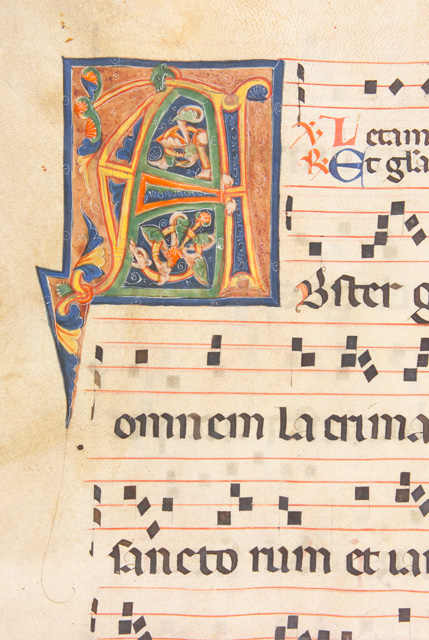 ℣ Letam
℟ Et gla
ABster g
omnem la crima
sancto rum et ia